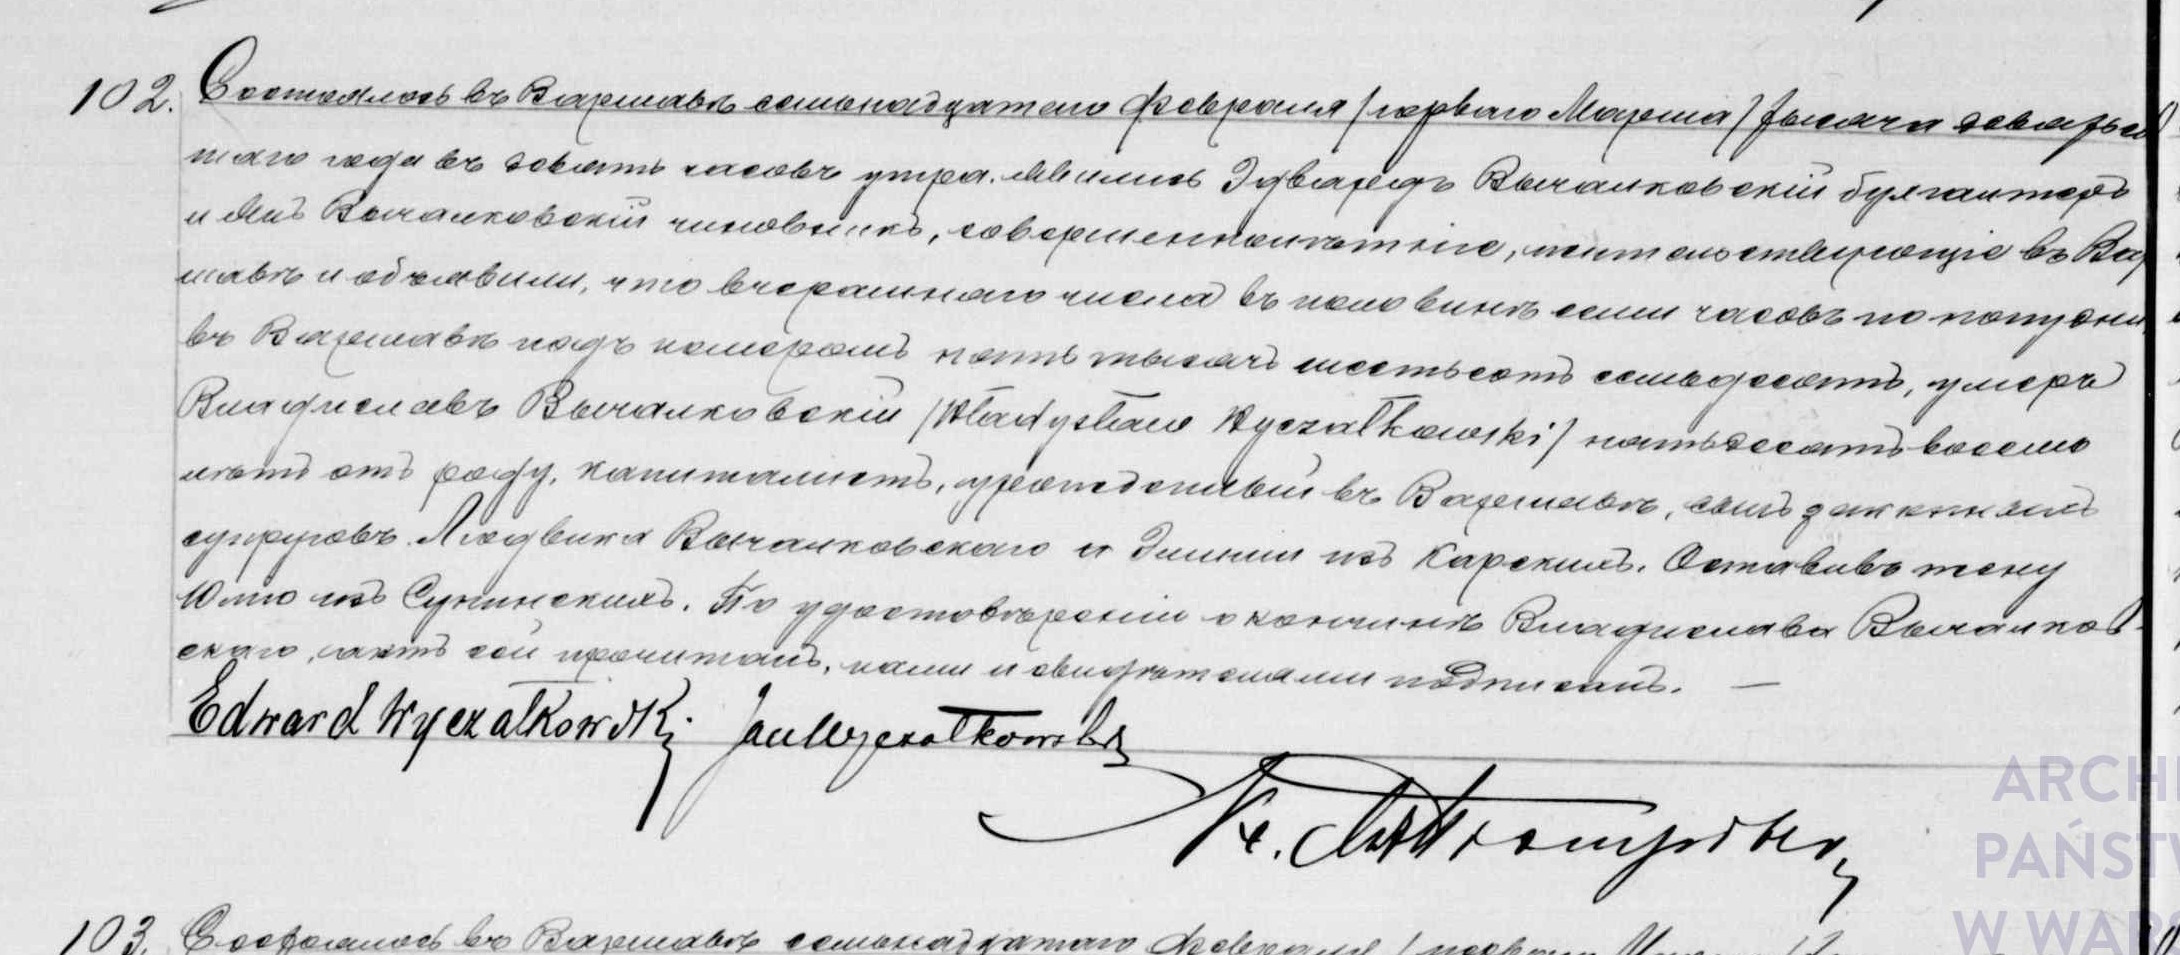 102. Состоялось въ Варшавѣ семьнадцатаго Февраля /перваго Марта/ тысяча девятьсо
таго года въ девять часовъ утра. Явились Эдвардъ Вычалковскій бухгалтеръ
и Янъ Вычалковскій чиновникъ, совершеннолѣтніе, жительствующіе въ Вар
шавѣ и объявили, что вчерашняго числа въ половинѣ семи часовъ по полудни
въ Варшавѣ подъ номеромъ пять тысячъ шестьсотъ семьдесятъ, умеръ
Владиславъ Вычалковскій /Władysław Wyczałkowski/ пятьдесятъ восемь
лѣтъ отъ роду, капиталистъ, урожденный въ Варшавѣ, сынъ законныхъ
супруговъ Людвика Вычалковскаго и Эмиліи изъ Карскихъ. Оставивъ жену
Юлію изъ Сулинскихъ. По удостовѣреніи о кончинѣ Владислава Вычалков-
скаго, актъ сей прочитанъ, нами и свидѣтелями подписанъ. —
Edward Wyczałkowski Jan Wyczałkowski
X.
103. Состоялось въ Варшавѣ семьнадцатаго Февраля /перваго Марта/
ARCHI
PAŃSTW
W WARS